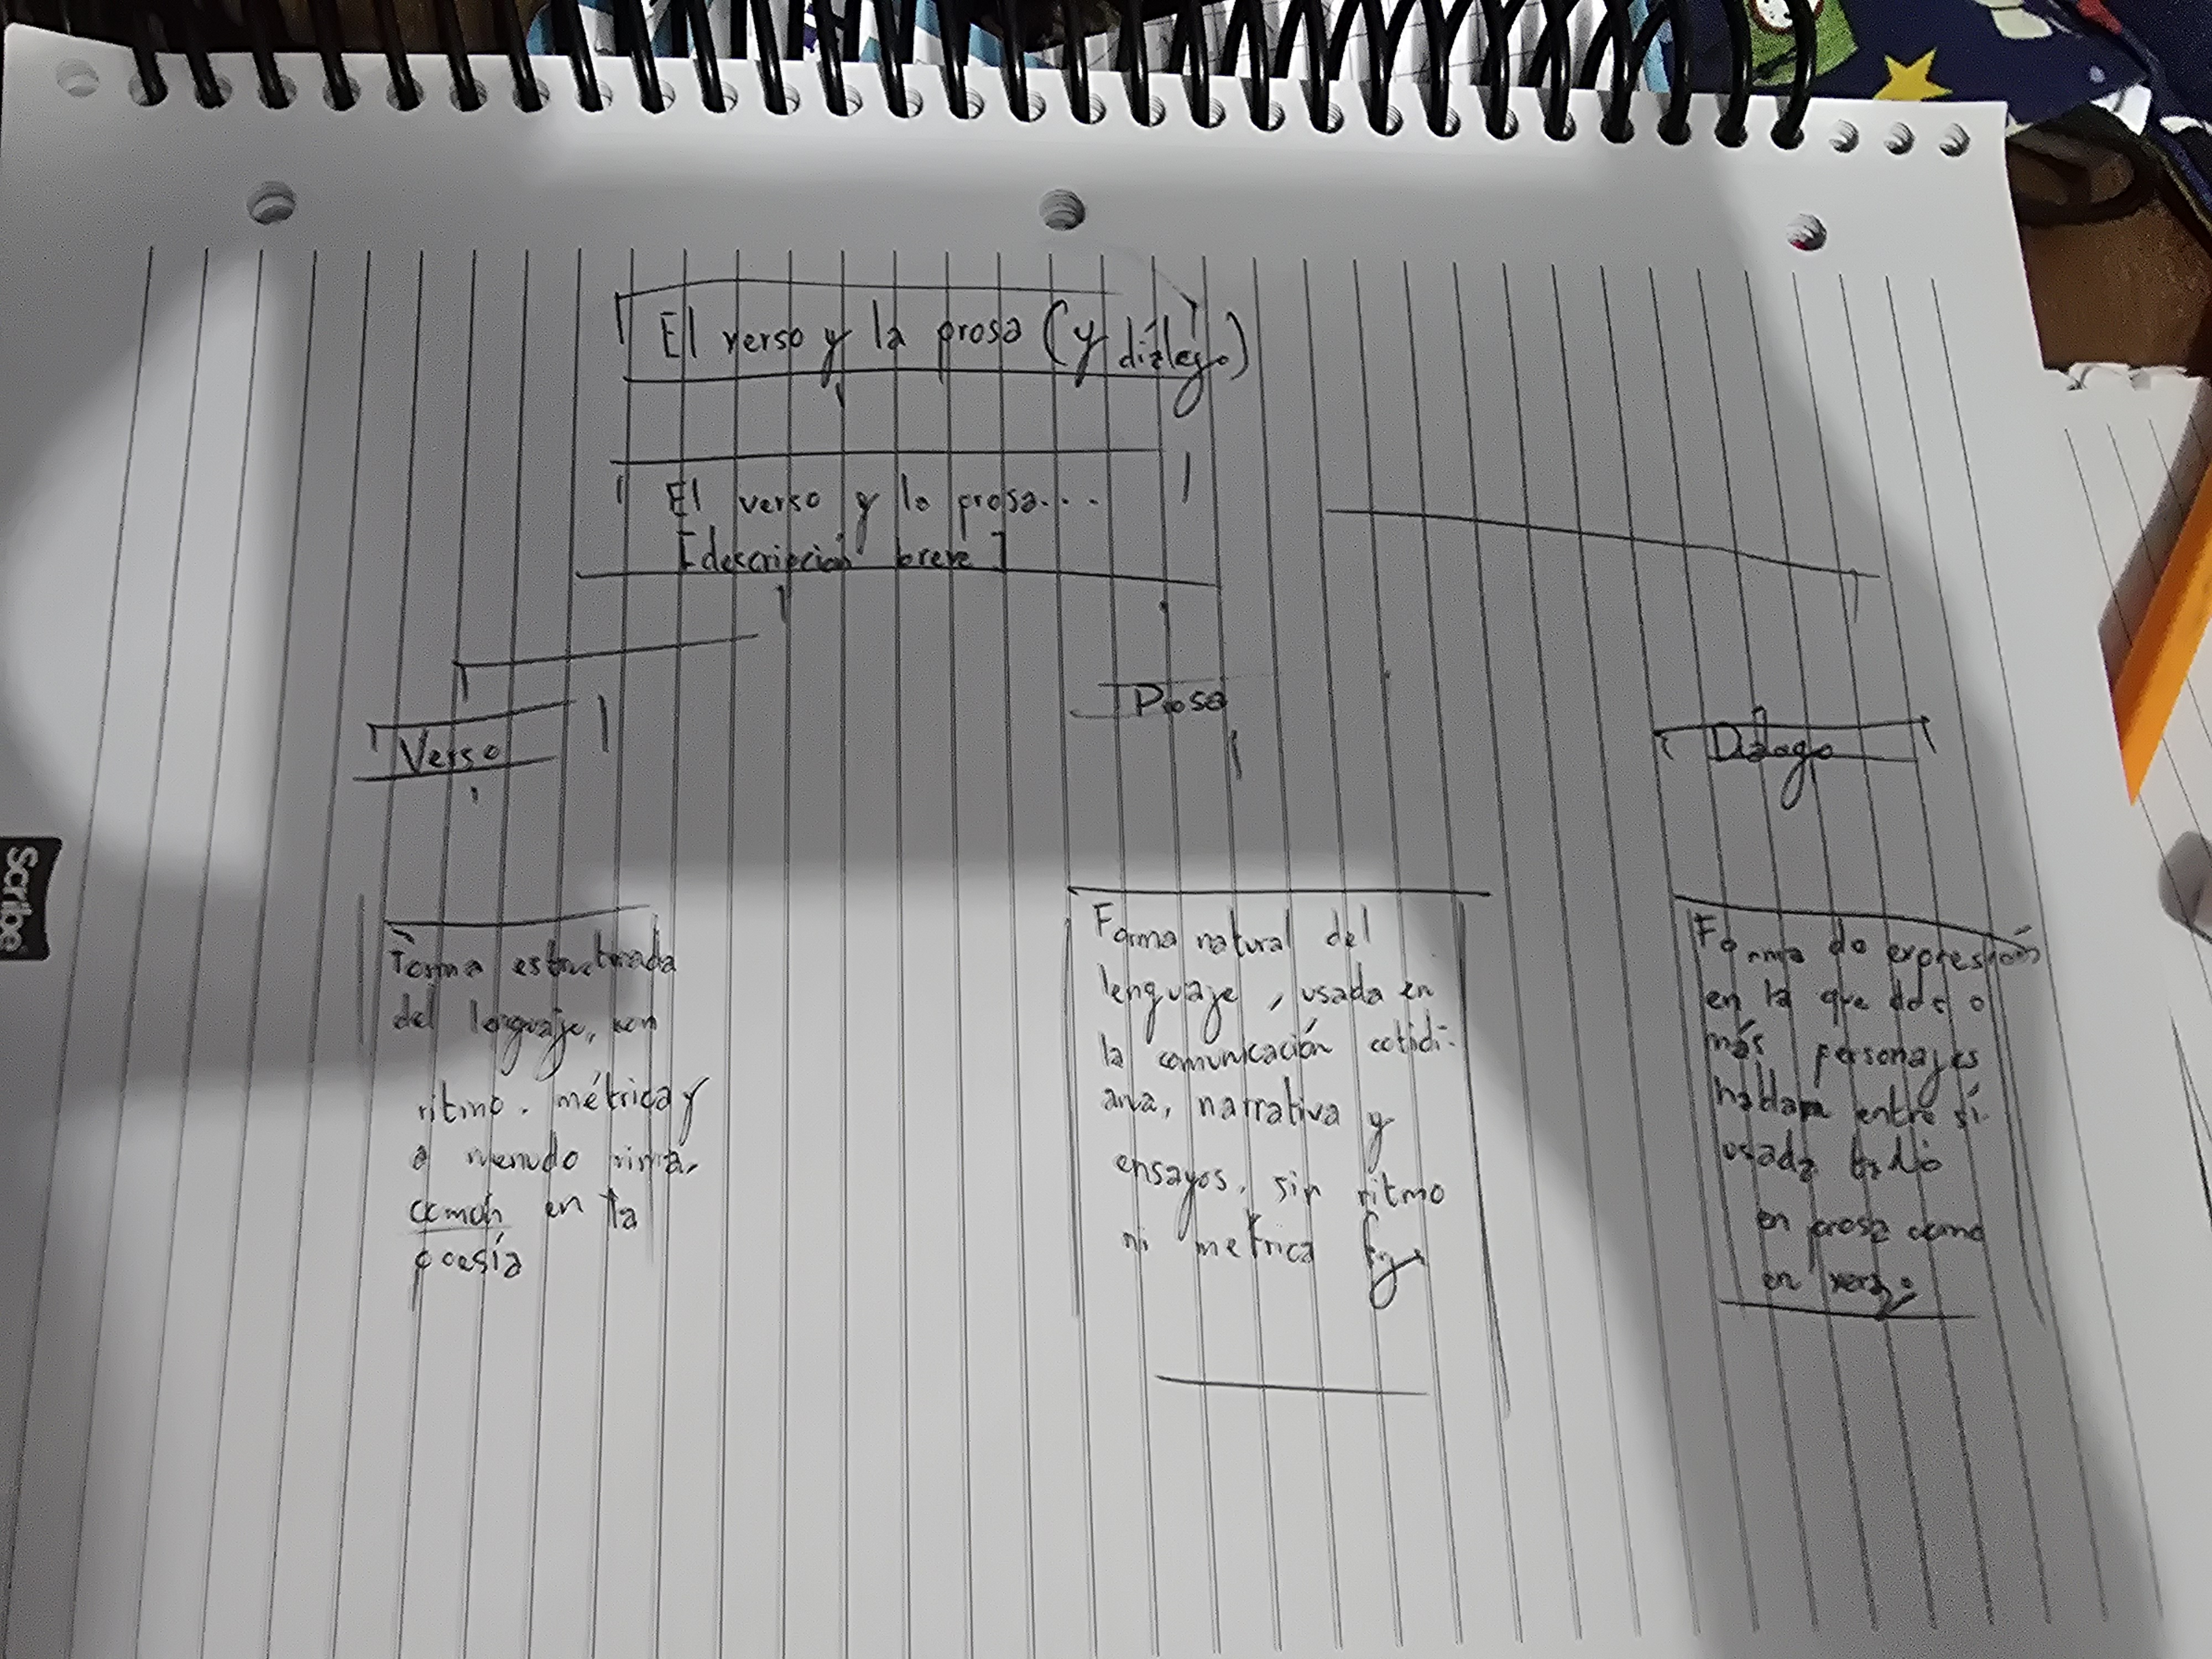 El verso y la prosa (y diálogo)
El verso y la prosa...
[descripción breve]
Verso
Prosa
Diálogo
Forma estructurada
del lenguaje, con
ritmo, métrica y
a menudo rima,
común en la
poesía
Forma natural del
lenguaje, usada en
la comunicación cotidi-
ana, narrativa y
ensayos, sin ritmo
ni métrica fija
Forma de expresión
en la que dos o
más personajes
hablan entre sí.
usada
en prosa como
en verso
Scribe